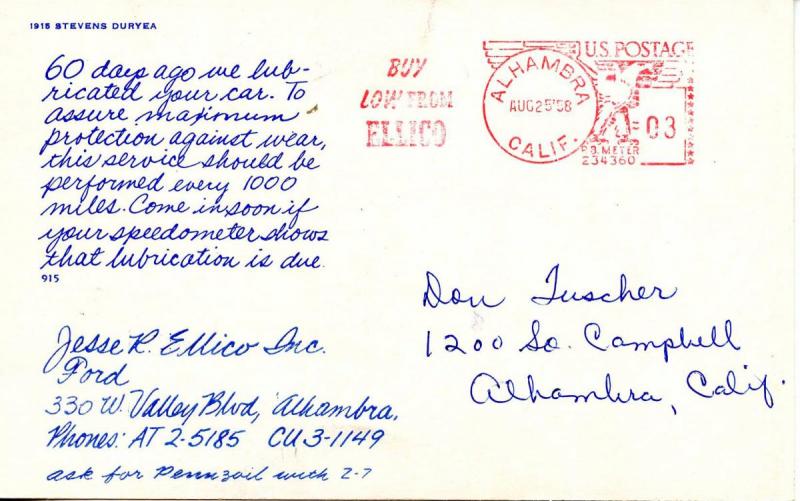 1915 STEVENS DURYEA
60 days ago we lub-
ricated your car. To
assure maximum
protection against wear,
this service should be
performed every 1000
miles. Come in soon if
your speedometer shows
that lubrication is due.
915
Jesse R. Ellico Inc.
Ford
330 W. Valley Blvd, Alhambra,
Phones: AT 2-5185 CU 3-1149
ask for Pennzoil with Z-7
BUY
LOW FROM
ELLICO
ALHAMBRA
AUG 25 '58
CALIF.
U.S. POSTAGE
03
P.B. METER
234360
Don Tuscher
1200 So. Campbell
Alhambra, Calif.